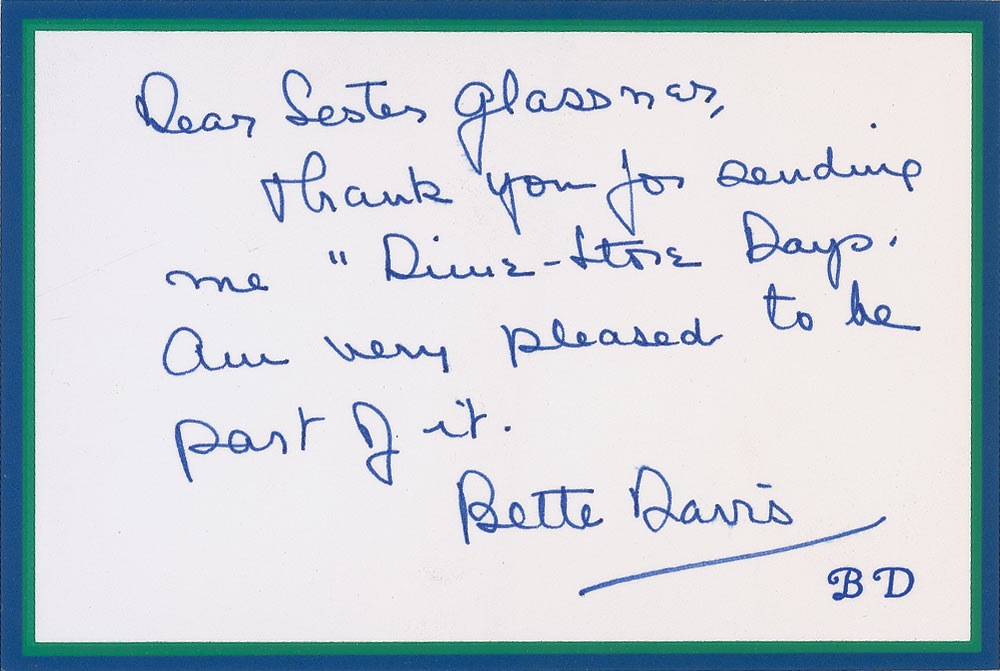 Dear Lester Glassner,
Thank you for sending
me " Dime-Store Days.
Am very pleased to be
part of it.
Bette Davis
BD